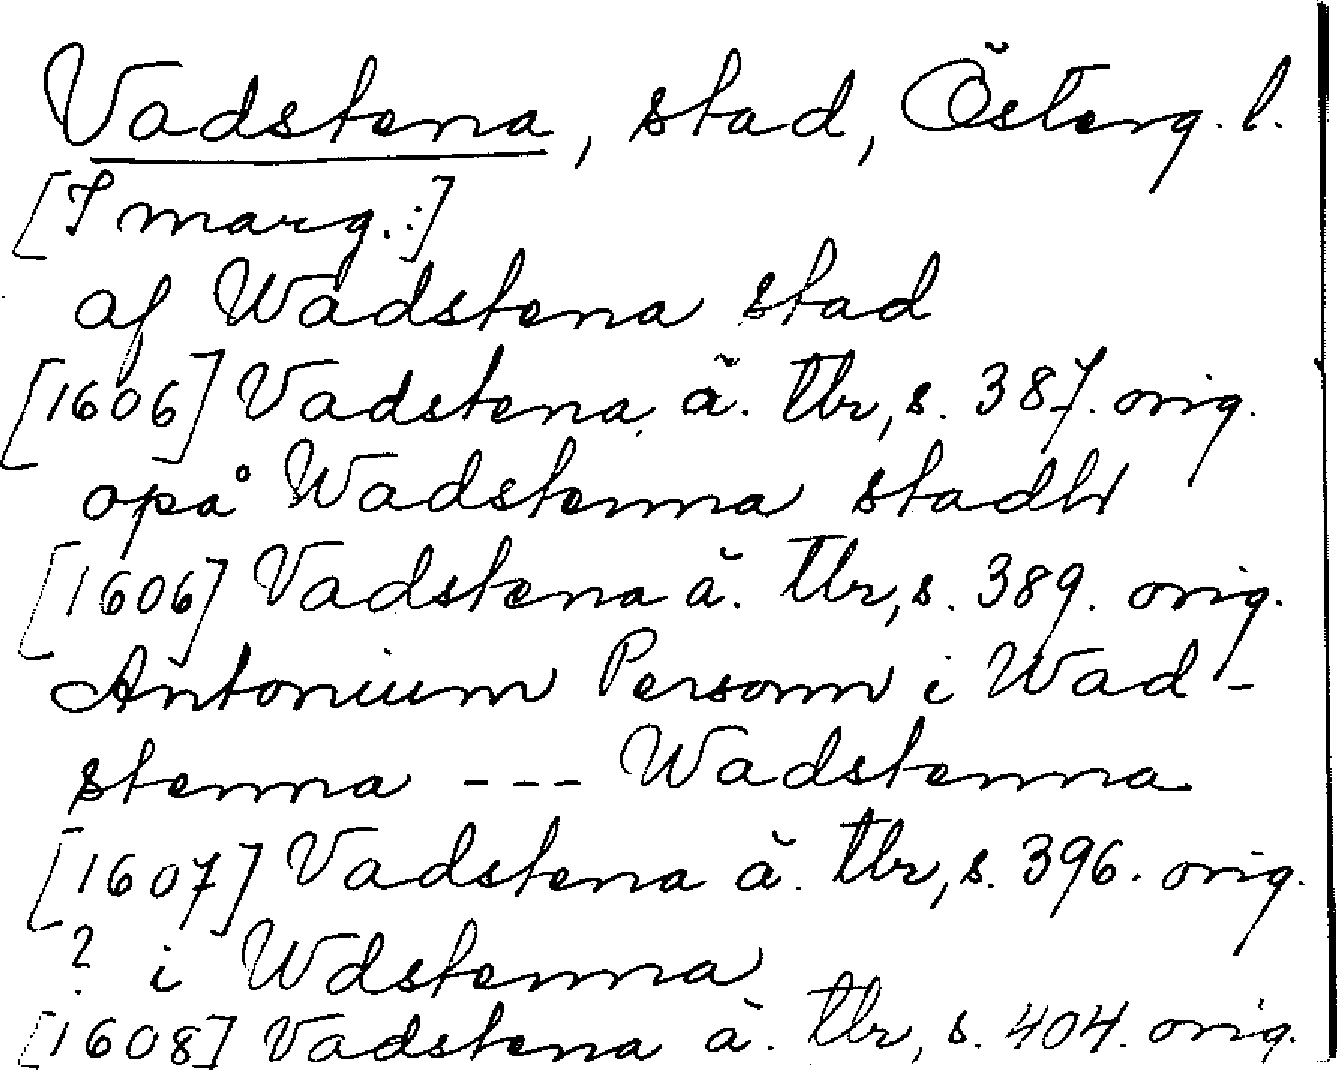 Vadstena, stad, Österg. l.
[I marg.:]
af Wadstena stad
[1606] Vadstena ä. tbr, s. 387. orig.
opå Wadstenna stadh
[1606] Vadstena ä. tbr, s. 389. orig.
Antonium Personn i Wad-
stenna --- Wadstenna
[1607] Vadstena ä. tbr, s. 396. orig.
? i Wdstenna
[1608] Vadstena ä. tbr, s. 404. orig.